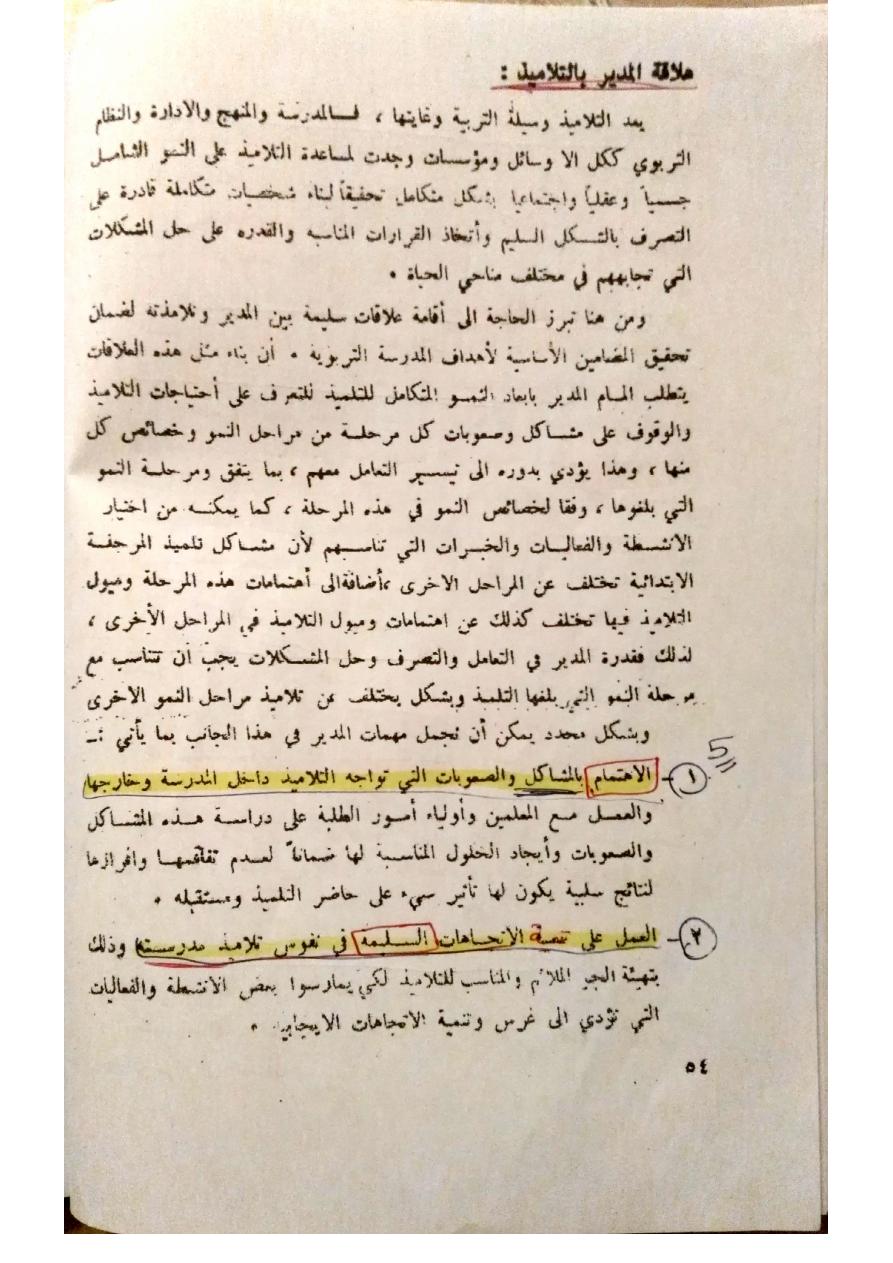 علاقة المدير بالتلاميذ :
يعد التلاميذ وسيلة التربية وغايتها ، فالمدرسة والمنهج والادارة والنظام
التربوي ككل الا وسائل ومؤسسات وجدت لمساعدة التلاميذ على النمو الشامل
جسمياً وعقلياً واجتماعيا بشكل متكامل تحقيقاً لبناء شخصيات متكاملة قادرة على
التصرف بالشكل السليم وأتخاذ القرارات المناسبه والقدره على حل المشكلات
التي تجابههم في مختلف مناحي الحياة .
ومن هنا تبرز الحاجة الى أقامة علاقات سليمة بين المدير وتلامذته لضمان
تحقيق المضامين الأساسية لأهداف المدرسة التربوية . أن بناء مثل هذه العلاقات
يتطلب المام المدير بابعاد النمو المتكامل للتلميذ للتعرف على أحتياجات التلاميذ
والوقوف على مشاكل وصعوبات كل مرحلة من مراحل النمو وخصائص كل
منها ، وهذا يؤدي بدوره الى تيسير التعامل معهم ، بما يتفق ومرحلة النمو
التي بلغوها ، وفقا لخصائص النمو في هذه المرحلة ، كما يمكنه من اختيار
الانشطة والفعاليات والخبرات التي تناسبهم لأن مشاكل تلميذ المرحلة
الابتدائية تختلف عن المراحل الاخرى ،أضافةالى أهتمامات هذه المرحلة وميول
التلاميذ فيها تختلف كذلك عن اهتمامات وميول التلاميذ في المراحل الأخرى ،
لذلك فقدرة المدير في التعامل والتصرف وحل المشكلات يجب أن تتناسب مع
مرحلة النمو التي بلغها التلميذ وبشكل يختلف عن تلاميذ مراحل النمو الاخرى
وبشكل محدد يمكن أن نجمل مهمات المدير في هذا الجانب بما يأتي :ـ
5
١ـ الأهتمام بالمشاكل والصعوبات التي تواجه التلاميذ داخل المدرسة وخارجها
والعمل مع المعلمين وأولياء أمور الطلبة على دراسة هذه المشاكل
والصعوبات وأيجاد الحلول المناسبة لها ضماناً لعدم تفاقمها وافرازها
لنتائج سلبية يكون لها تأثير سيء على حاضر التلميذ ومستقبله .
٢ـ العمل على تنمية الاتجاهات السليمه في نفوس تلاميذ مدرسته وذلك
بتهيئة الجو الملائم والمناسب للتلاميذ لكي يمارسوا بعض الأنشطة والفعاليات
التي تؤدي الى غرس وتنمية الاتجاهات الايجابية .
٥٤